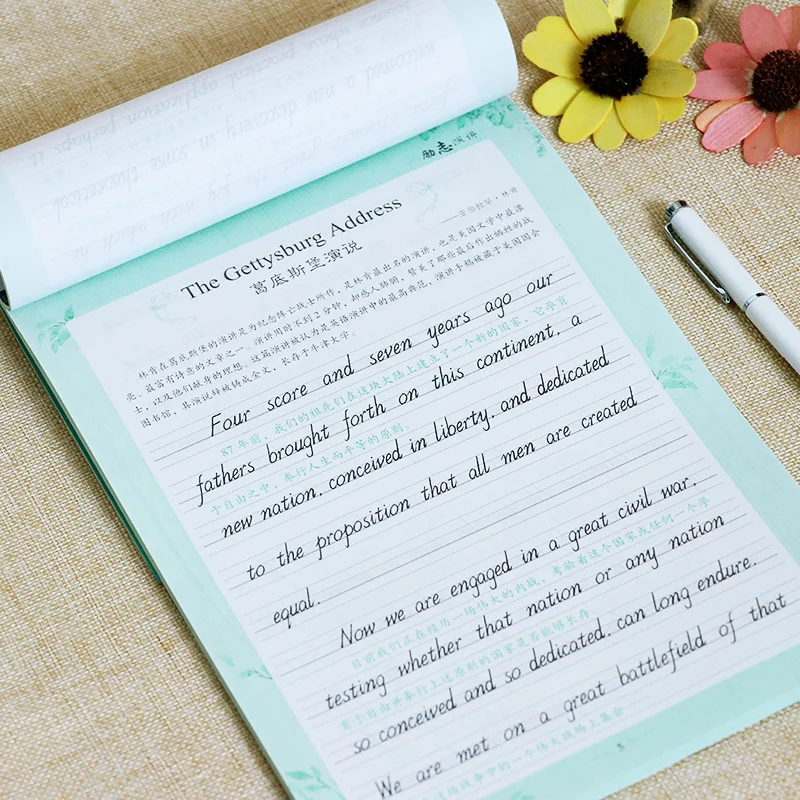 励志演讲
The Gettysburg Address
葛底斯堡演说
——亚伯拉罕·林肯
林肯在葛底斯堡的演讲是为纪念阵亡战士所作，是林肯最出名的演讲，也是美国文学中最漂
亮、最富有诗意的文章之一。演讲用时不到2分钟，却感人肺腑，赞美了那些最后作出牺牲的战
士，以及他们献身的理想。这篇演讲被认为是英语演讲中的最高典范，演讲手稿被藏于美国国会
图书馆，其演说辞被铸成金文，长存于牛津大学。
Four score and seven years ago our
87年前，我们的祖先们在这块大陆上建立了一个新的国家，它孕育
fathers brought forth on this continent, a
于自由之中，奉行人生而平等的原则。
new nation, conceived in liberty, and dedicated
to the proposition that all men are created
equal.
Now we are engaged in a great civil war,
目前我们正在经历一场伟大的内战，考验着这个国家或任何一个孕
testing whether that nation or any nation
育于自由并奉行上述原则的国家是否能够长存。
so conceived and so dedicated, can long endure.
We are met on a great battlefield of that
这场战争中的一个伟大战场上集会……
5